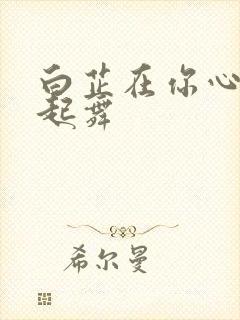 白芷在你心
起舞
希尔曼